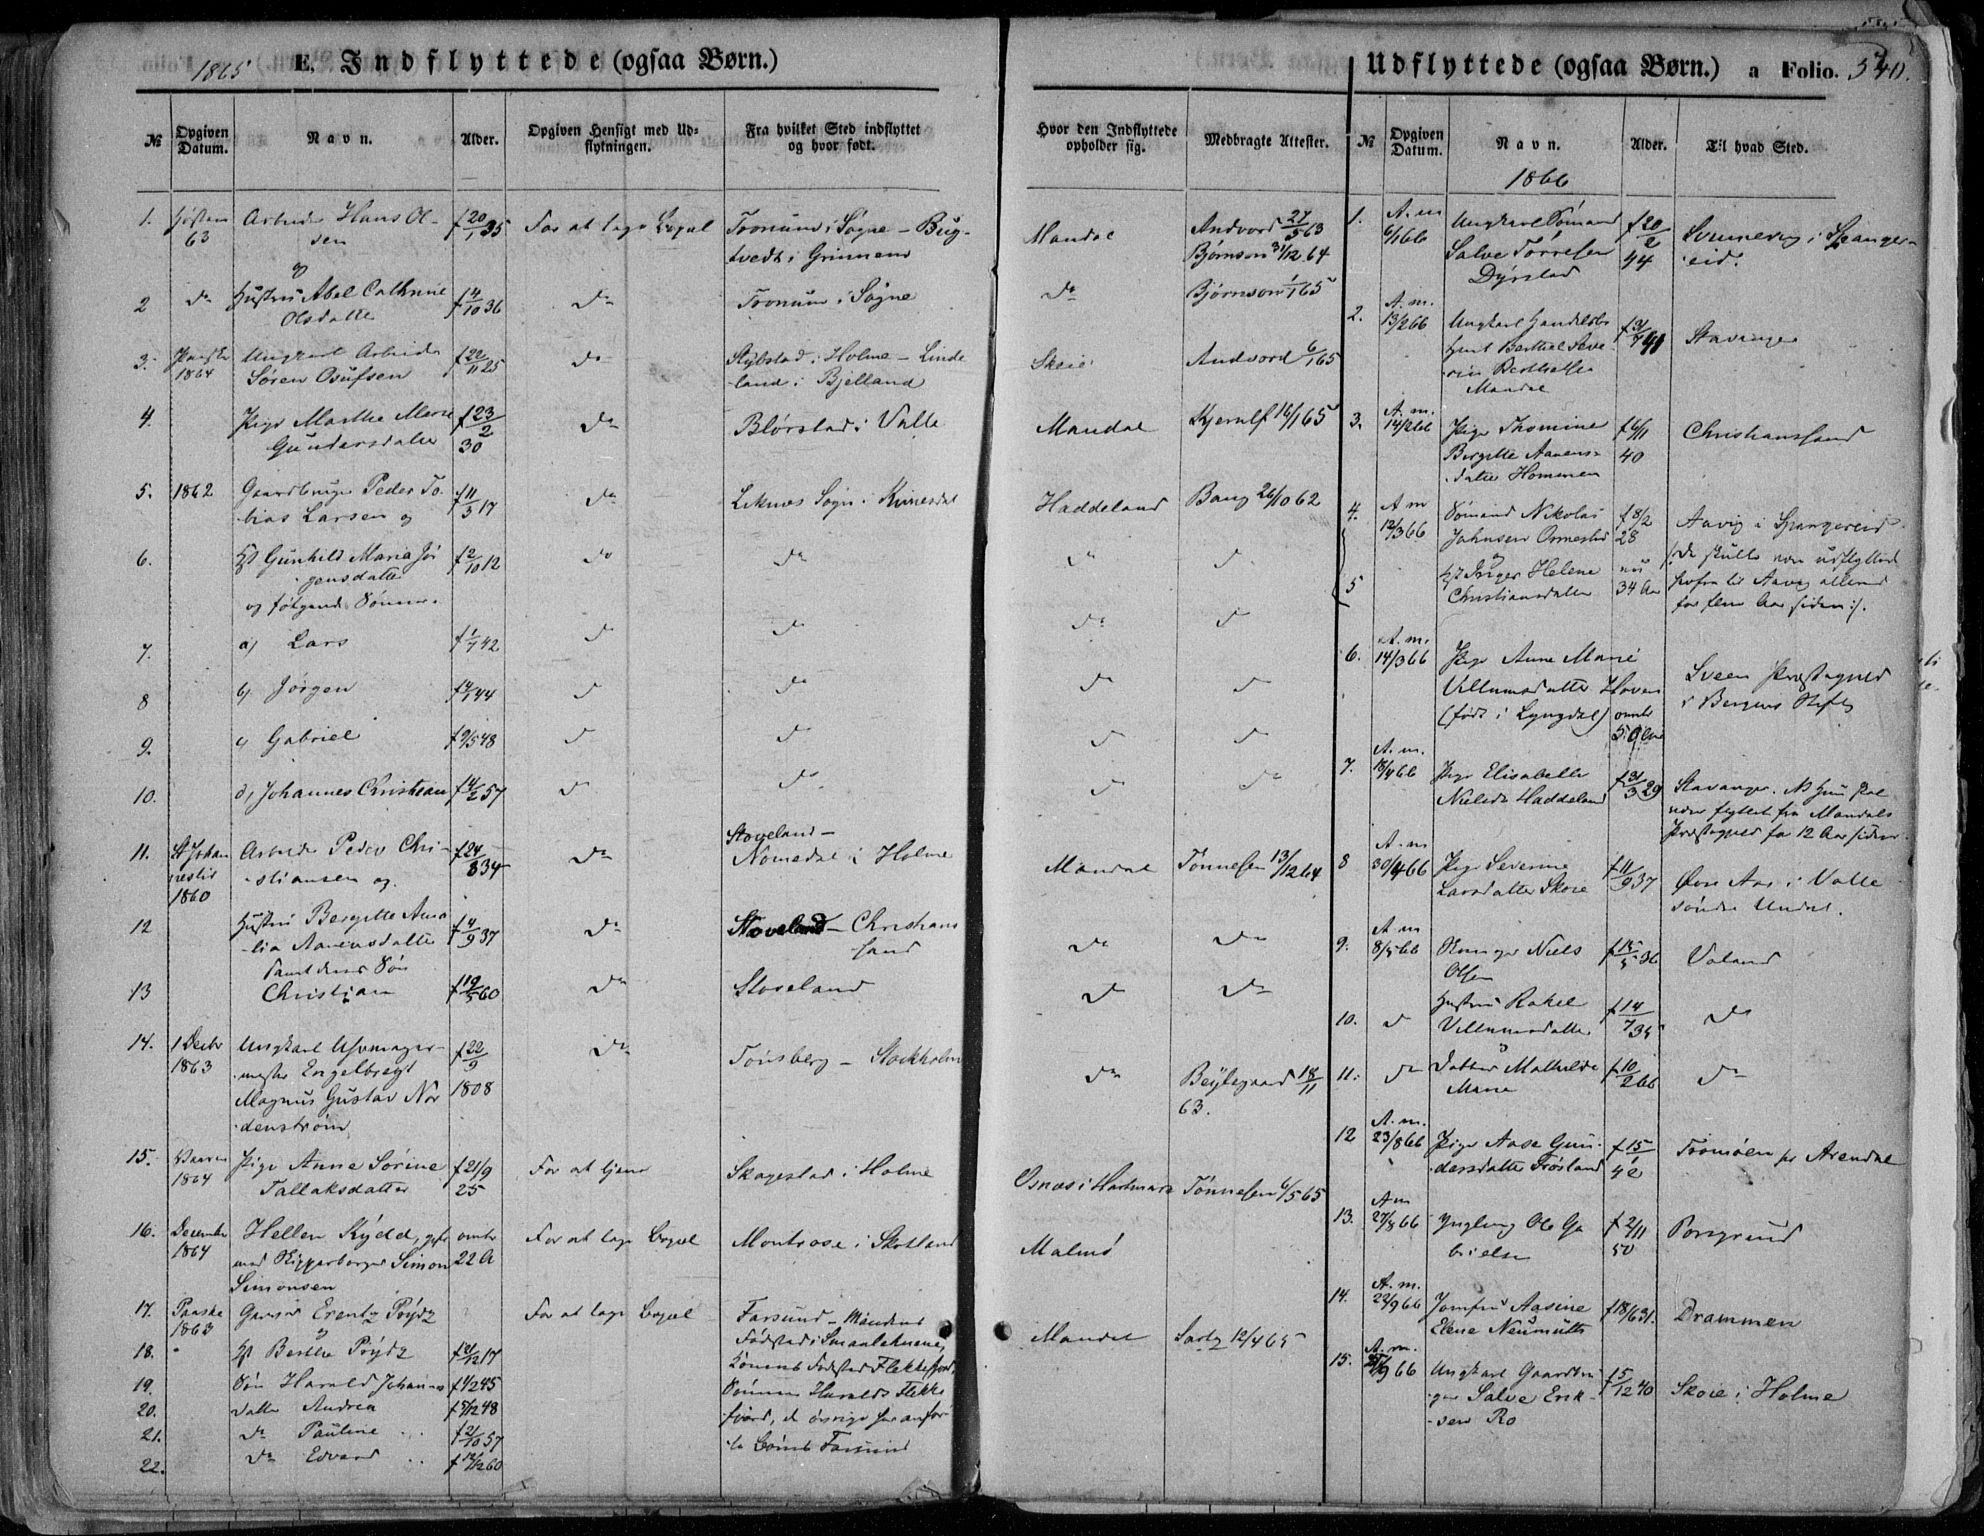 1865 E. Indflyttede (ogsaa Børn.)
№ Opgiven Datum. Navn. Alder. Opgiven Hensigt med Udflytningen. Fra hvilket Sted indflyttet og hvor født. Hvor den Indflyttede opholder sig. Medbragte Attester.
1. 63 Arbeider Hans Ol- f 20/1 35 For at tage Logai Tronum i Søgne - Bug- Mandal Andvord 27/5 63
sen tvedt i Grimmend Bjørnson 31/12 64
og
2 do Hustru Abel Cathrine f 4/10 36 do Tronum i Søgne do Bjørnson 1/1 65
Olsdatter
3. 1864 Ungkarl Arbeider f 22/11 25 do i Holme - Linde Skoie Andvord 6/1 65
Søren Osufsen land i Bjelland
4. Pige Marthe Marie f 23/2 do Blørstad i Valle Mandal Kjerulf 16/1 65
Gundersdatter 30
5. 1862 Gaardbruger Peder To- f 11/3 17 do Leknes Sogn i Kvinesdal Haddeland Bang 26/10 62
bias Larsen og
6. Gunhild Maria Jør f 2/10 12 do do
gensdatter
og følgende Sønner.
7. a) Lars f 1/7 42 d d
8 b) Jørgen f 4/1 44 d do
9. c) Gabriel f 9/5 48 d d
10. d) Johannes Christian f 4/2 57 d d
Stoveland -
11. St Johan Arbeider Peder Chri- f 24/8 34 do Nomedal i Holme Mandal Tønnesen 13/12 64
nestid stiansen og
1860
12 Hustru Bergitte Ama f 4/9 37 do Stoveland - Christians do do
lia Aanensdatter sand
samt deres Søn
13 Christian f 19/5 60 do Stoveland d do
14. 1 Decbr Ungkarl f 22/9 do Tønsberg - Stockholm do 18/11
1863 mester Engelbregt 1808 63.
Magnus Gustav Nor
denstrøm
15. Vaaren Pige Anne Sorine f 21/9 For at tjene Skagestad i Holme Osnæs i Hartmark Tønnesen 6/5 65
1864 Tallaksdatter 25
16. December Hellen Kydd, omtr For at tage Logai Montrose i Skotland Malmø
1864 med Skipperborger Simon 22 A
Simonsen
17. Paaske Garver Erentz Pøydz For at tage Logai Farsund - Mandens
1863 og Fødested i Smaalehnene,
18. Berthe Pøydz f 21/12 17 Konens Fødested Flekkefjord, Mandal 12/4 65
19. Søn Harald Johannes f 4/2 45 Sønnen Haralds Flekke
20. Datter Andrea f 5/12 48 fjord, de øvrige
21. do Pauline f 2/10 57
22. do Edvard f 12/12 60 Farsund
Udflyttede (ogsaa Børn.) a Folio. 540.
№ Opgiven Datum. Navn. Alder. Til hvad Sted.
1866
1. A. m Ungkarl Sømand f 20/2 Svennevig i Spanger-
6/1 66 Salve Torresen 44 eid.
Dyrstad
2. A. m. Ungkarl Handelsbe f 31/7 41 Stavanger
13/2 66 tjent Berthel Seve-
rin Berthelsen
Mandal
3. A. m. Pige Thomine f 6/11 Christianssand
14/2 66 Bergitte Aanens- 40
datter Hommen
4. A m Sømand Nikolai f 8/2 Aavig i Spangereid
12/3 66 Johnsen Ormestad 28 (: De skulle være udflyttede
og
5 Inger Helene nu herfra til Aavig allerede
Christiansdatter 34 Aar for flere Aar siden :).
6. A. m. Pige Anne Marie Sveen Præstegjeld
14/3 66 Villumsdatter Haven omtr i Bergens Stift
(født i Lyngdal) 50 Aar
7. A. m. Pige Elisabethe f 31/3 29 Stavanger. NB Hun skal
18/4 66 Nielsdr Haddeland være flyttet fra Mandals
Præstegjeld for 12 Aar siden.
8 A. m Pige Severine f 11/9 37 Øvre Aas i Valle
30/4 66 Larsdatter Skoie søndre Undal.
9. A. m Niels f 15/5 36 Valand
8/5 66 Olsen
10. d Hustru Rakel f 14/7 35 do
Villumsdatter
og
11. do Datter Mathilde f 10/2 66 do
Marie
12 A. m. Pige Aase Gun- f 15/1 Tromøen pr Arendal
23/8 66 dersdatter Frøsland 42
13. A m Yngling Ole Ga f 2/11 Porsgrund
27/8 66 brielsen 50
14. A. m. Jomfru Aasine f 18/6 31. Drammen
22/9 66 Elene Neumütts
15. A. m. Ungkarl Gaardbru f 5/12 40 Skoie i Holme
9 66 ger Salve Erik-
sen Ro